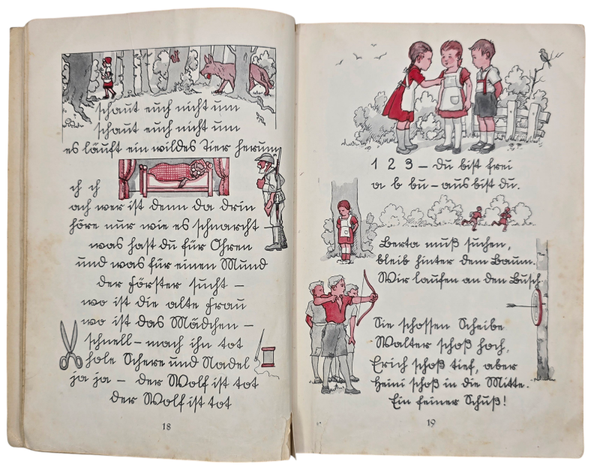 schaut euch nicht um
schaut euch nicht um
es läuft ein wildes Tier herum
ch ch
ach wer ist denn da drin
höre nur wie es schnarcht
was hast du für Ohren
und was für einen Mund
der Förster sucht –
wo ist die alte Frau
wo ist das Mädchen –
schnell – mach ihn tot
hole Schere und Nadel
ja ja – der Wolf ist tot
der Wolf ist tot
18
1 2 3 – du bist frei
a b bu – aus bist du.
Berta muß suchen,
bleib hinter dem Baum.
Wir laufen an den Busch
Sie schossen Scheibe
Walter schoß hoch,
Erich schoß tief, aber
Heini schoß in die Mitte.
Ein feiner Schuß!
19